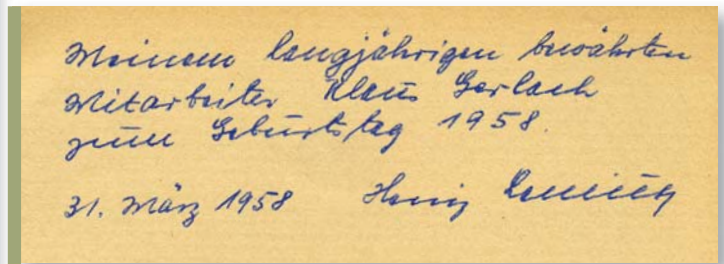 Meinem langjährigen bewährten
Mitarbeiter Klaus Gerlach
zum Geburtstag 1958.
31. März 1958